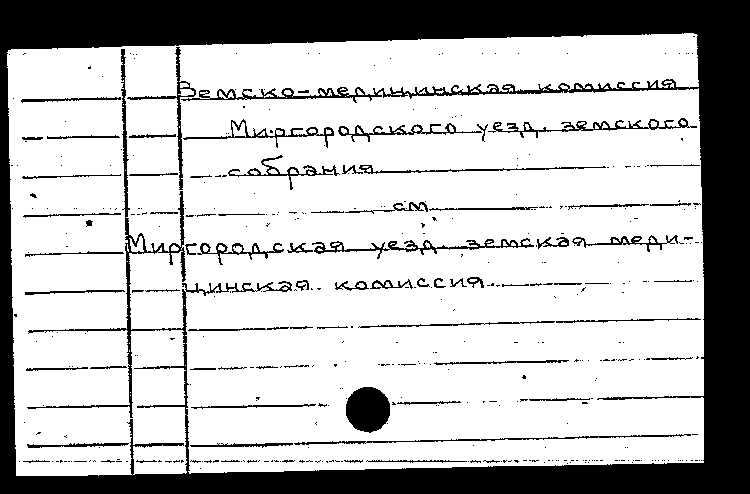 Земско-медицинская комиссия
Миргородского уезд. земского
собрания
см
Миргородская уезд. земская меди-
цинская комиссия